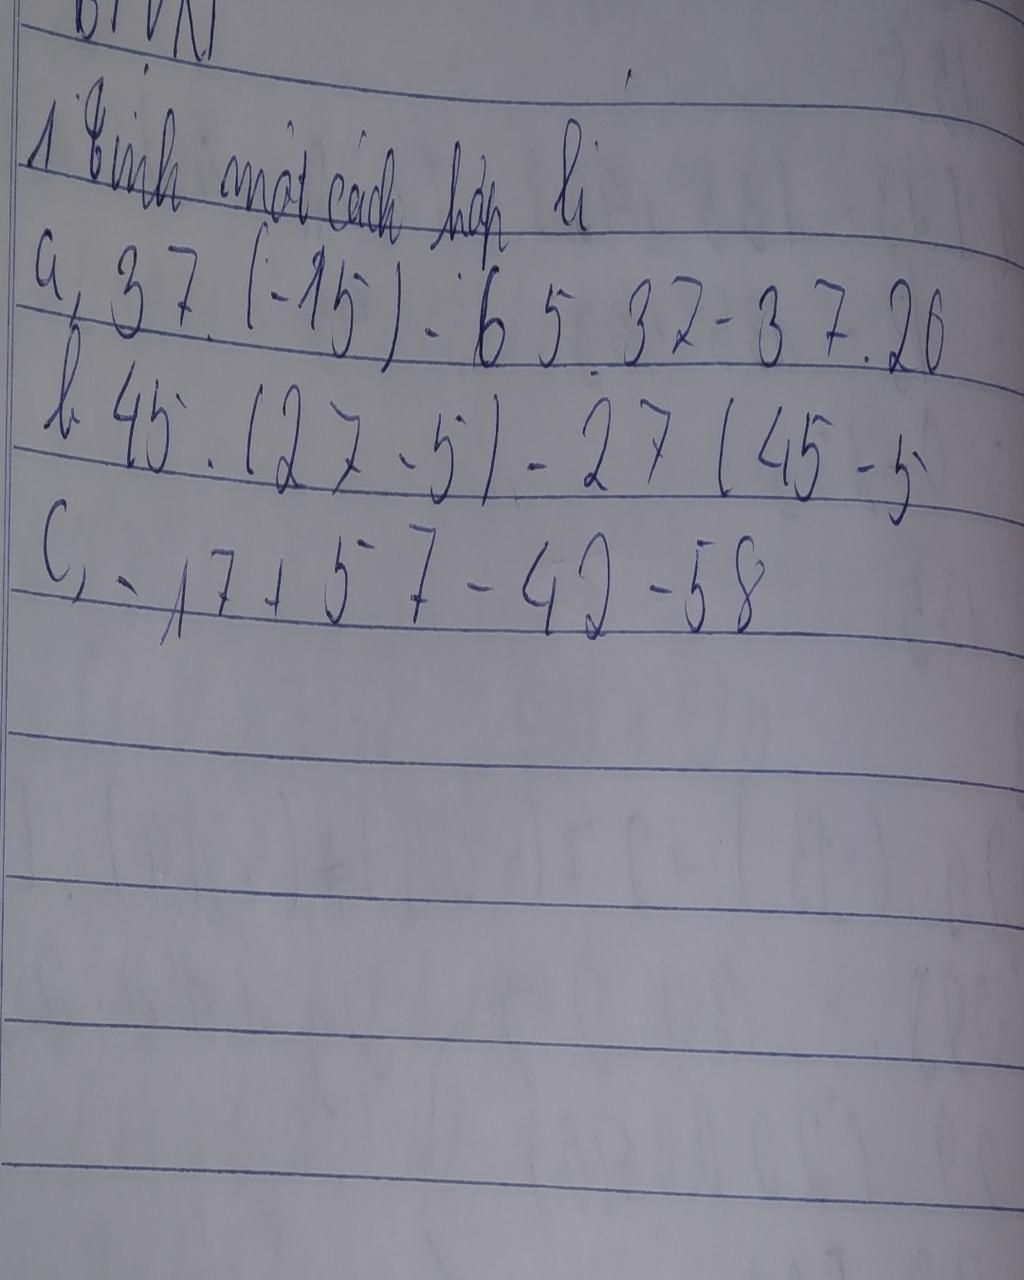 BTVN
1 Tính một cách hợp lí
a, 37. (-15) - 65.37 - 37.20
b 45. (27 - 5) - 27 (45 - 5
C, - 17 + 57 - 42 - 58